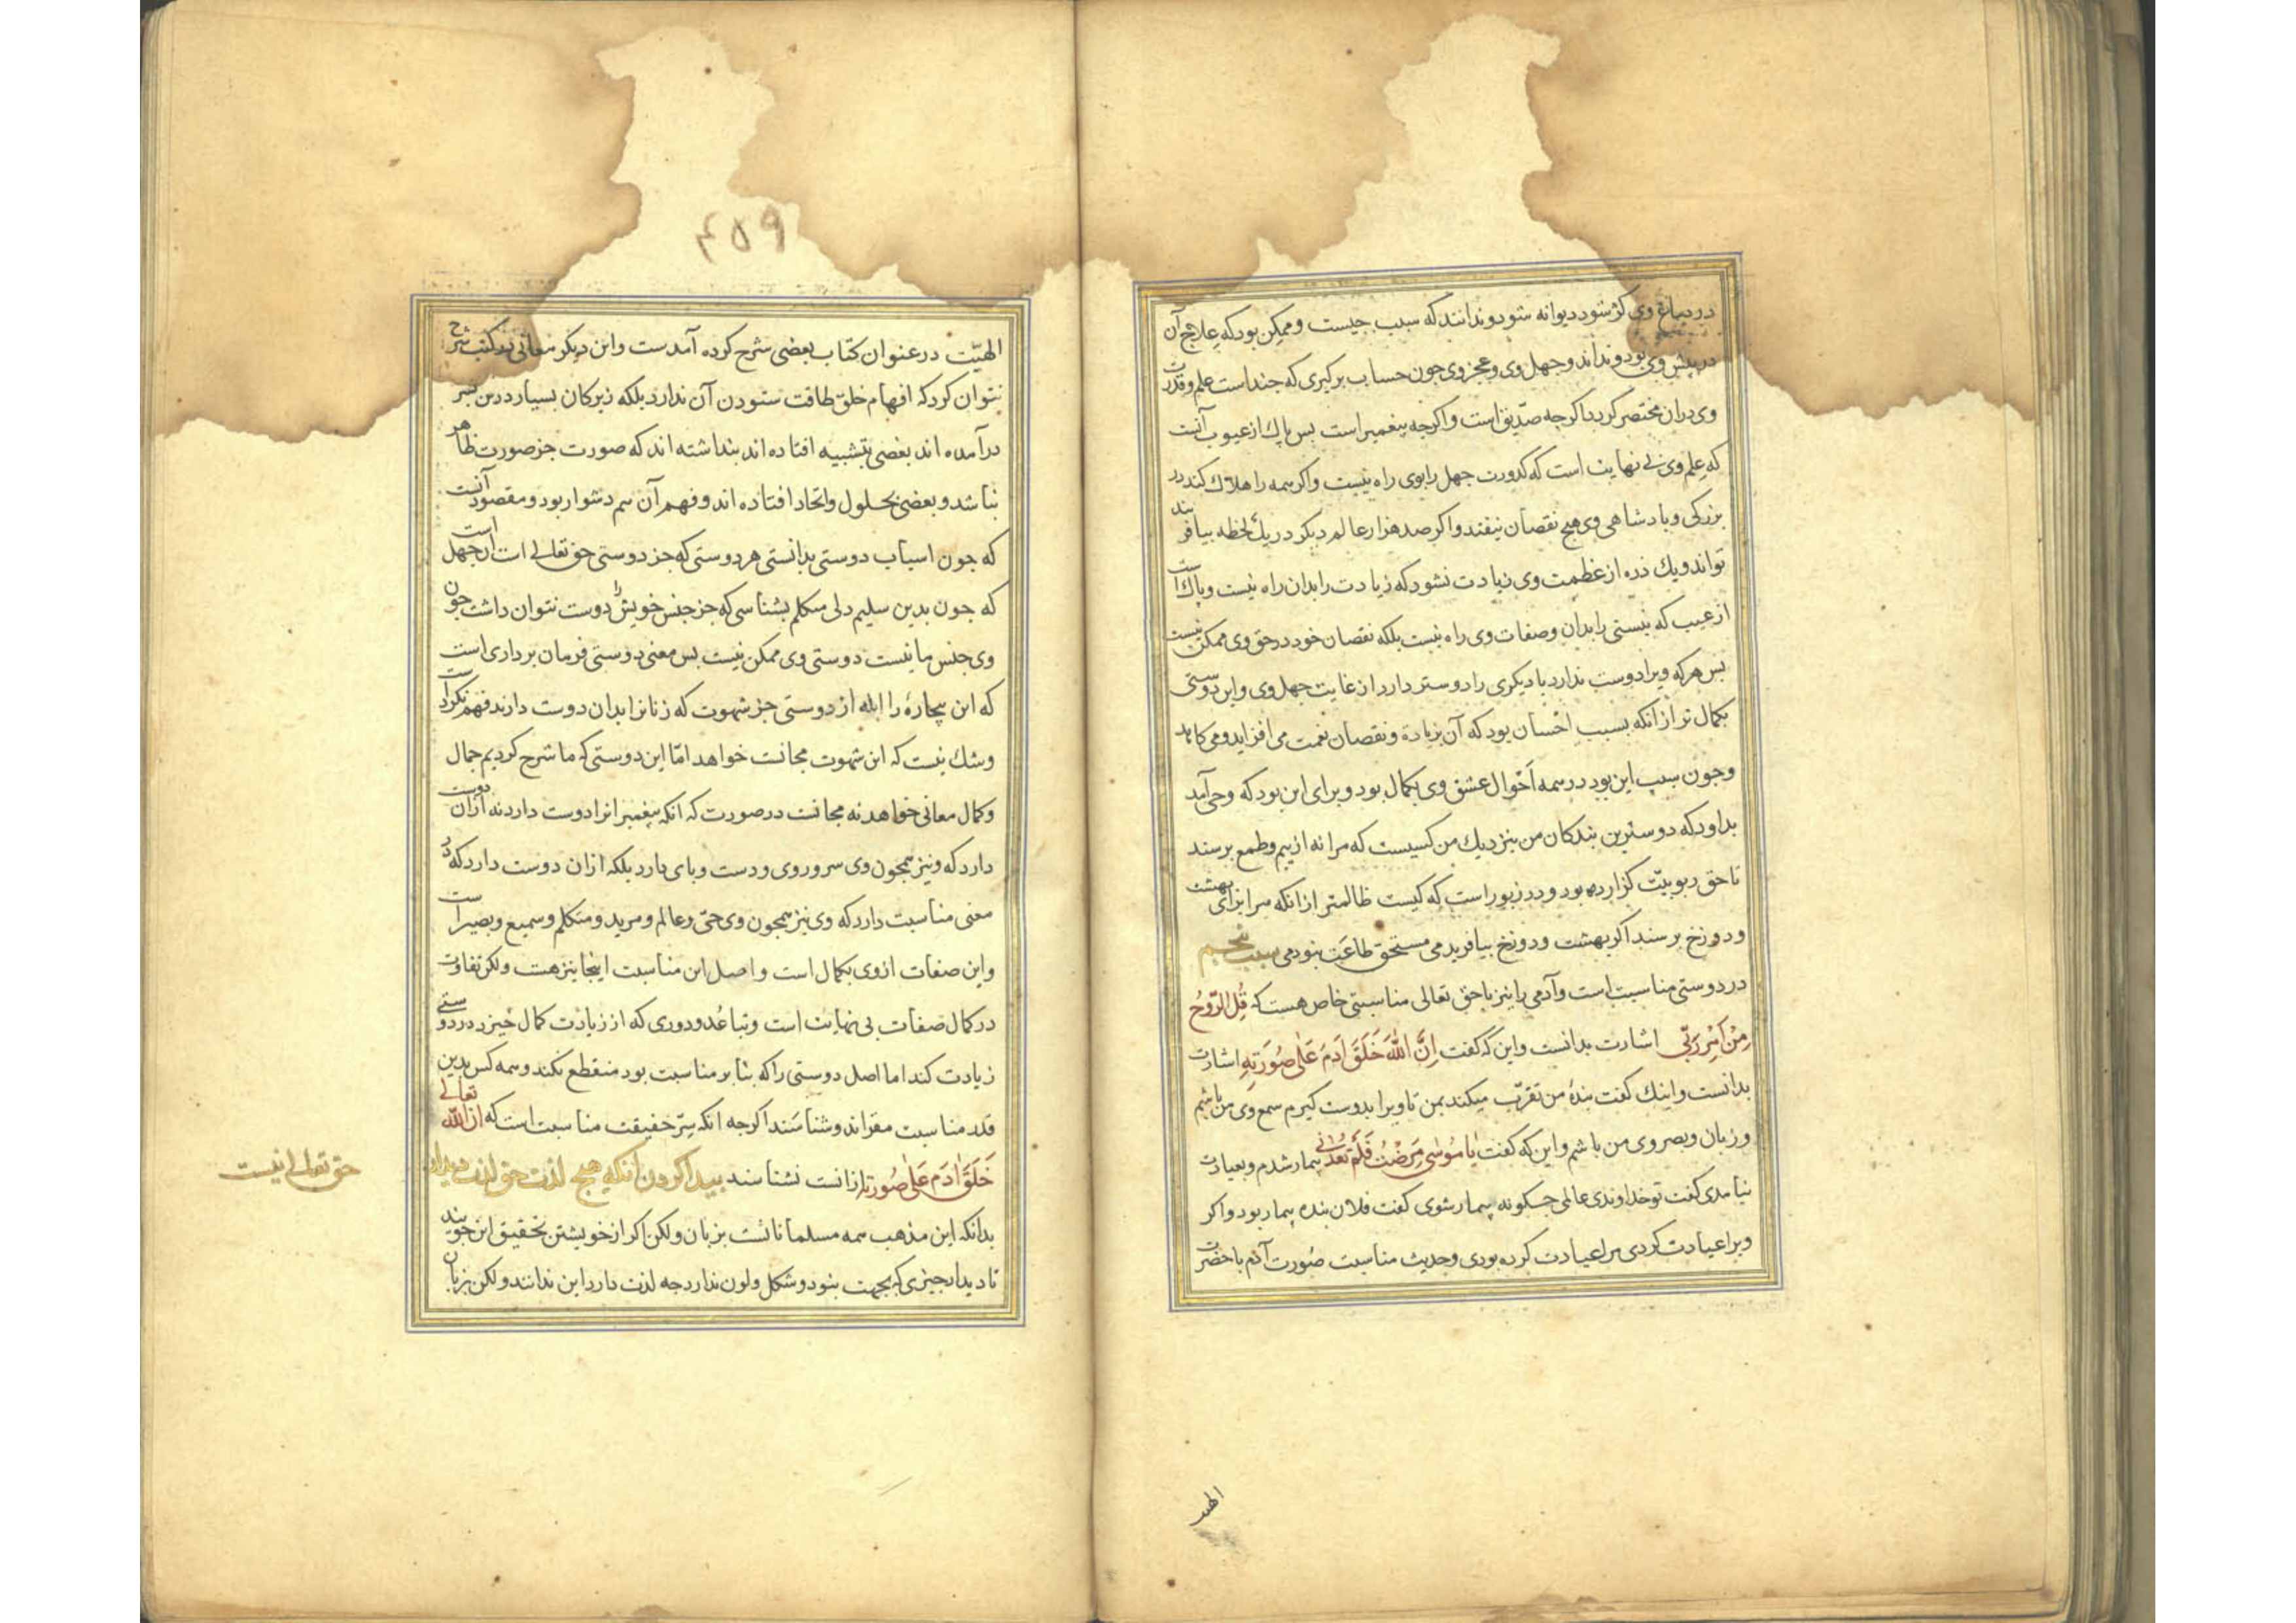 در دماغ وی کژ شود دیوانه شود و نداند که سبب جیست و ممکن بود که علاج آن
در پیش وی بود و نداند و جهل وی و عجز وی جون حساب برکیری که جنداست علم و قدرت
وی در آن مختصر کردد اکرجه صدّیق است و اکرجه پیغمبر است بس پاك از عیوب آنست
که علم وی بی نهایت است که کدورت جهل را بوی راه نیست و اکر همه را هلاك کند در
بزرکی و بادشاهی وی هیج نقصان نیفتد و اکر صد هزار عالم دیکر در یك لحظه بیافریند
تواند و یك ذره از عظمت وی زیادت نشود که زیادت را بدان راه نیست و پاك است
از عیب که نیستی را بدان و صفات وی راه نیست بلکه نقصان خود در حق وی ممکن نیست
بس هر که ویرا دوست ندارد یا دیکری را دوستر دارد از غایت جهل وی و این دوستی
بکمال تر از انکه بسبب احْسان بود که آن بزیادة و نقصان نعمت می افزاید و می کاهد
و جون سبب این بود در همه اَحْوال عشق وی بکمال بود و برای این بود که وحی آمد
بداود که دوسترین بندکان من بنزدیك من کسیست که مرا نه از بیم و طمع پرسند
تا حق ربوبیّت کزارده بود و در زبور است که کیست ظالمتر از انکه مرا برای بهشت
و دوزخ پرسند اکر بهشت و دوزخ نیافریدمی مستحق طاعَت نبودمی سبب پنجم
در دوستی مناسبت است و آدمی را نیز با حق تعالی مناسبتی خاص هست که قُلِ الرّوُحُ
مِنْ اَمْرِ رَبّی اشارت بدانست و این که گفت اِنَّ اللّٰهَ خَلَقَ اٰدَمَ عَلٰی صُورَتِهِ اشارت
بدانست و اینك کفت بندهٔ من تقرّب میکند بمن تا ویرا بدوست کیرم سمع وی من باشم
و زبان و بصر وی من باشم و این که کفت یٰا مُوسٰی مَرِضْتُ فَلَمْ تَعُدْنی بیمار شدم و بعیادت
نیامدی کفت تو خداوندی عالمی جکونه بیمار شوی کفت فلان بنده بیمار بود و اکر
ویرا عیادت کردی مرا عیادت کرده بودی و حدیث مناسبت صُورت آدم با حضرت
الهیّت
۴۵۹
الهیّت در عنوان کتاب بعضی شرح کرده آمدست و این دیکر معانی در کتب شرح
نتوان کرد که افهام خلق طاقت ستودن آن ندارد بلکه زیرکان بسیار درین بسر
درآمده اند بعضی بتشبیه افتاده اند بنداشته اند که صورت جز صورت ظاهر
نباشد و بعضی بحلول و اتحاد افتاده اند و فهم آن هم دشوار بود و مقصود آنست
که جون اسباب دوستی بدانستی هر دوستی که جز دوستی حق تعالی است از جهل است
که جون بدین سلیم دلی متکلم بشناسی که جز جنس خویش را دوست نتوان داشت جون
وی جنس ما نیست دوستی وی ممکن نیست بس معنی دوستی فرمان برداری است
که این بیچارهٔ را ابله از دوستی جز شهوت که زنانرا بدان دوست دارند فهم نکرده است
و شك نیست که این شهوت مجانست خواهد امّا این دوستی که ما شرح کردیم جمال
و کمال معانی خواهد نه مجانست در صورت که انکه پیغمبرانرا دوست دارد نه از آن دوست
دارد که و نیز همجون وی سر و روی و دست و بای دارد بلکه از ان دوست دارد که در
معنی مناسبت دارد که وی نیز همجون وی حَیّ و عالم و مرید و متکلم و سمیع و بصیر است
و این صفات از وی بکمال است و اصل این مناسبت اینجا نیز هست و لکن تفاوت
در کمال صفات بی نهایت است و تباعُد و دوری که از زیادت کمال خیزد در دوستی
زیادت کند اما اصل دوستی را که بنا بر مناسبت بود منقطع نکند و همه کس بدین
قدر مناسبت مقراند و شناسَند اکرجه انکه سِرّ حقیقت مناسبت است که ان اللّٰه تعالی
خَلَقَ اٰدَم عَلٰی صُورتِهٖ ازانست نشناسند پیدا کردن آنکه هیچ لذت حق لذت دیدار
حق تعالی نیست
بدانکه این مذهب همه مسلمانانست بزبان و لکن اکر از خویشتن تحقیق این جویند
تا دیدار جیزی که بجهت نبود و شکل و لون ندارد جه لذت دارد این ندانند و لکن بزبان